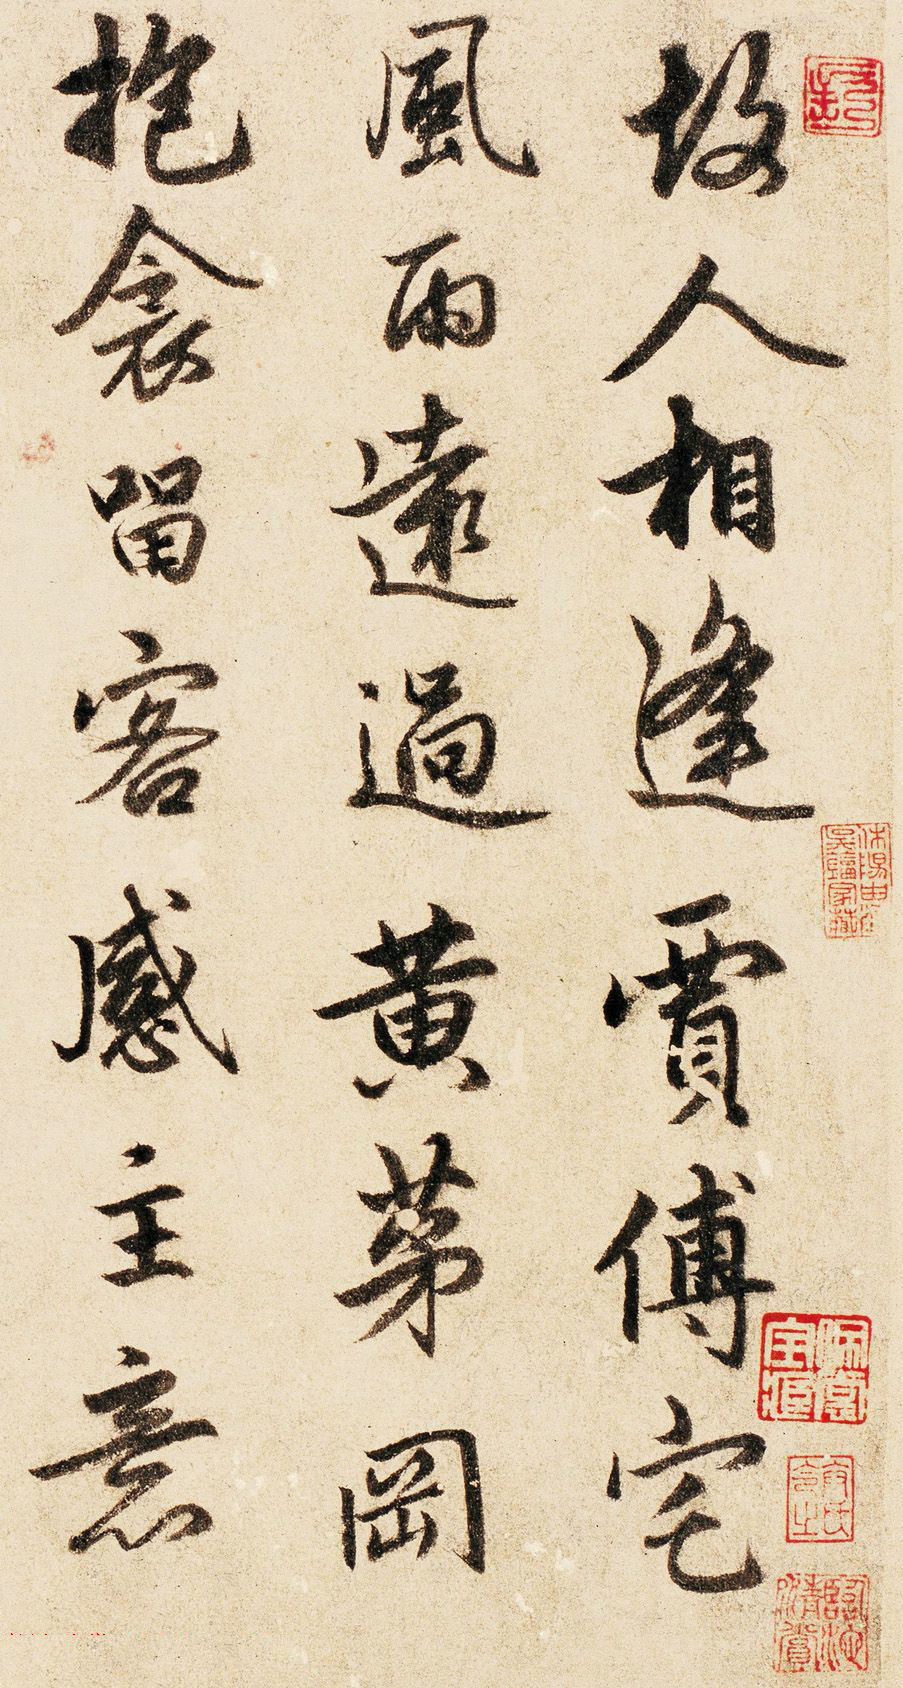 故人相逢賈傅宅
風雨遠過黄茅岡
抱衾留客感主意